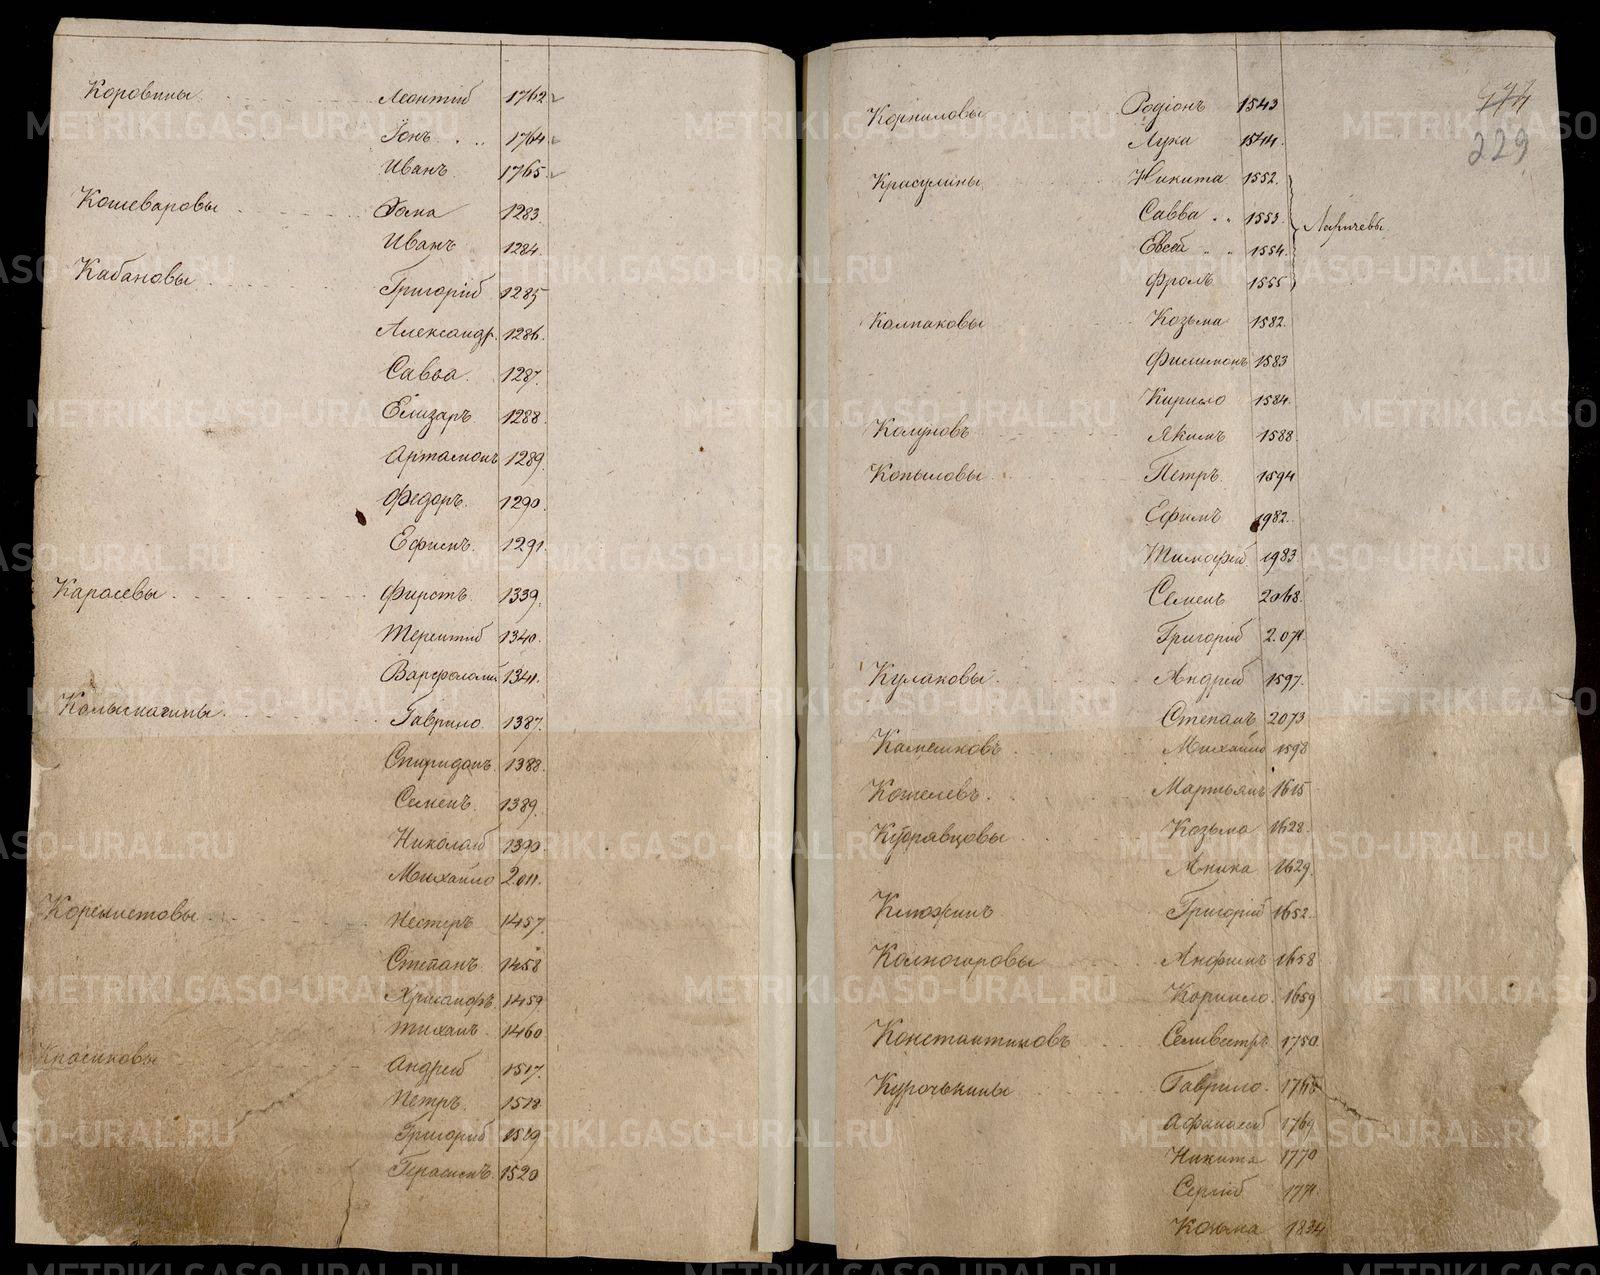 Коровины Леонтiй 1762
Iонъ 1764
Иванъ 1765
Кошеваровы Фома 1283
Иванъ 1284
Кабановы Григорiй 1285
Александр. 1286
Савва 1287
Елизаръ 1288
Артамонъ 1289
Федоръ 1290
Ефимъ 1291
Карасевы Фирстъ 1339
Терентiй 1340
Варфоломей 1341
Гаврило 1387
Спиридонъ 1388
Семенъ 1389
Николай 1390
Михайло 2011
Нестеръ 1457
Степанъ 1458
Хрисанфъ 1459
Тиханъ 1460
Красиковы Андрей 1517
Петръ 1518
Григорiй 1519
Герасимъ 1520
229
Корниловы Родiонъ 1543
Лука 1544
Красулины Никита 1552
Савва 1553
Ларичевы
Евсей 1554
Фролъ 1555
Колпаковы Козьма 1582
Филимонъ 1583
Кирило 1584
Колуновъ Якимъ 1588
Копыловы Петръ 1594
Ефимъ 1982
Тимофей 1983
Семенъ 2068
Григорiй 2071
Кулаковы Андрей 1597
Степанъ 2073
Камешковъ Михайло 1598
Кошелевъ Мартьянъ 1615
Кудрявцовы Козьма 1628
Аника 1629
Клюжинъ Григорiй 1652
Колногоровы Анфимъ 1658
Корнило 1659
Константиновъ Селивестръ 1750
Курочькины Гаврило 1768
Афанасей 1769
Никита 1770
Сергiй 1771
Козьма 1834
METRIKI.GASO-URAL.RU